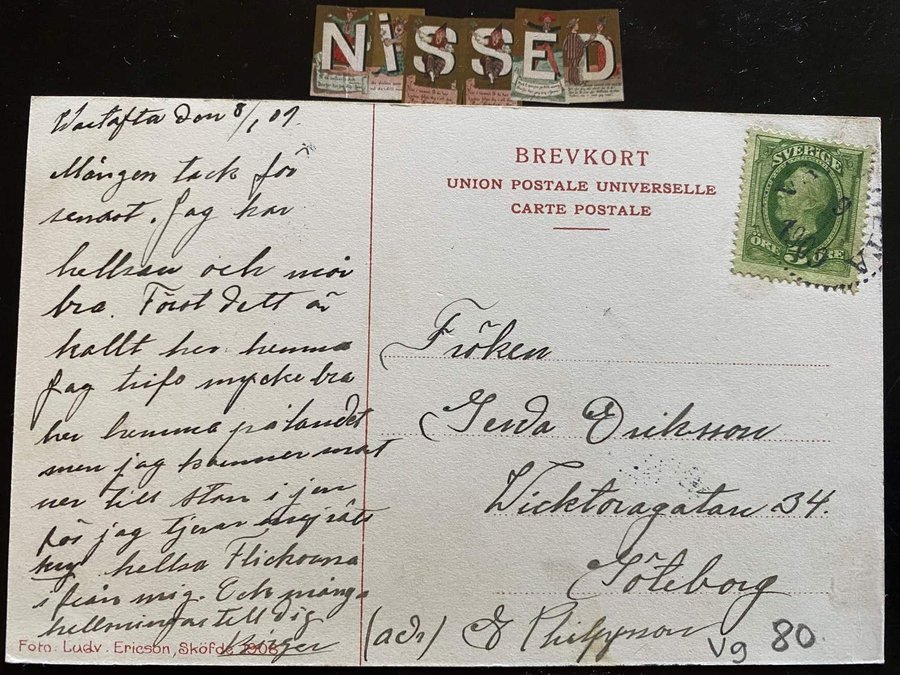 NiSSED
Wartofta den 8/1 09.
Mången tack för
senast. Jag har
hellsan och mår
bra. Först dett är
kallt her hemma
Jag trifs mycke bra
her hemma på landet
men jag kommer snart
ner till stan i jen
för jag
hellsa Flickorna
i från mig. Och många
hellsningar till dig
Foto: Ludv. Ericson, Sköfde 1908
BREVKORT
UNION POSTALE UNIVERSELLE
CARTE POSTALE
SVERIGE
ÖRE 5 ÖRE
Fröken
Gerda Eriksson
Wicktoragatan 34.
Göteborg
(adr) E Philipsson
Vg 80